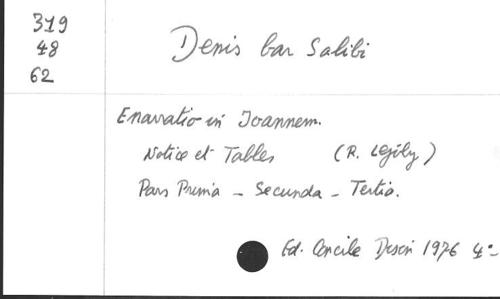 319
48
62
Denis bar Salibi
Enarratio in Joannem.
Notice et Tables (R. Lejoly)
Pars Prima - Secunda - Tertia.
Ed. Concile 1976 4°-